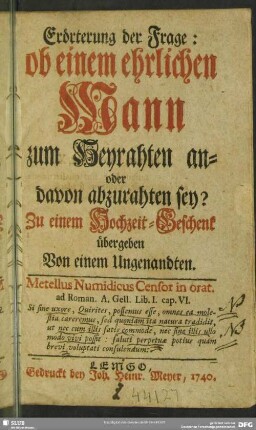 Erörterung der Frage:
ob einem ehrlichen
Mann
zum Heyrahten an-
oder
davon abzurahten sey?
Zu einem Hochzeit-Geschenk
übergeben
Von einem Ungenandten.
Metellus Numidicus Censor in orat.
ad Roman. A. Gell. Lib. I. cap. VI.
Si sine uxore, Quirites, possemus esse, omnes ea mole-
stia careremus, sed quoniam ita natura tradidit,
ut nec cum illis satis commode, nec sine illis ullo
modo vivi possit: saluti perpetuæ potius quam
brevi voluptati consulendum.
NB
NB
LEMGO,
Gedruckt bey Joh. Heinr. Meyer, 1740.
SLUB
DFG